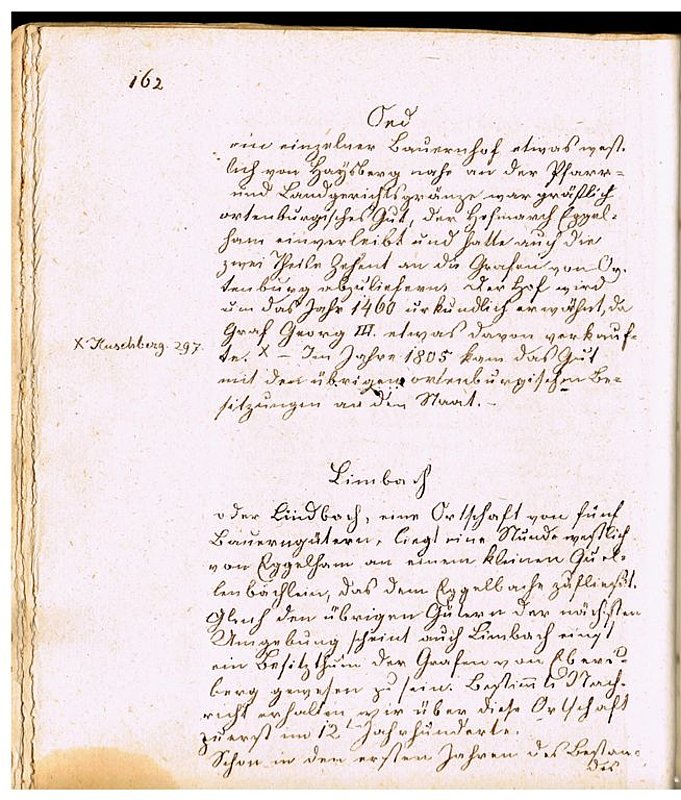 162
Oed
ein einzelner Bauernhof etwas west-
lich von Haysberg nahe an der Pfarr=
und Landgerichtsgränze war gräflich
ortenburgisches Gut, der Hofmarch Eggel-
ham einverleibt und hatte auch die
zwei Theile Zehent an die Grafen von Or-
tenburg abzuliefern. Der Hof wird
um das Jahr 1460 urkundlich erwähnt, da
Graf Georg III. etwas davon verkauf-
te. X – Im Jahre 1805 kam das Gut
X Huschberg. 297.
mit den übrigen ortenburgischen Be-
sitzungen an den Staat. –
Limbach
oder Lindbach, eine Ortschaft von fünf
Bauerngütern, liegt eine Stunde westlich
von Eggelham an einem kleinen Quel-
lenbächlein, das dem Eggelbache zufließt.
Gleich den übrigen Gütern der nächsten
Umgebung scheint auch Limbach einst
ein Besitzthum der Grafen von Ebers-
berg gewesen zu sein. Bestimmte Nach-
richt erhalten wir über diese Ortschaft
zuerst im 12t Jahrhunderte.
Schon in den ersten Jahren des Bestan-
des